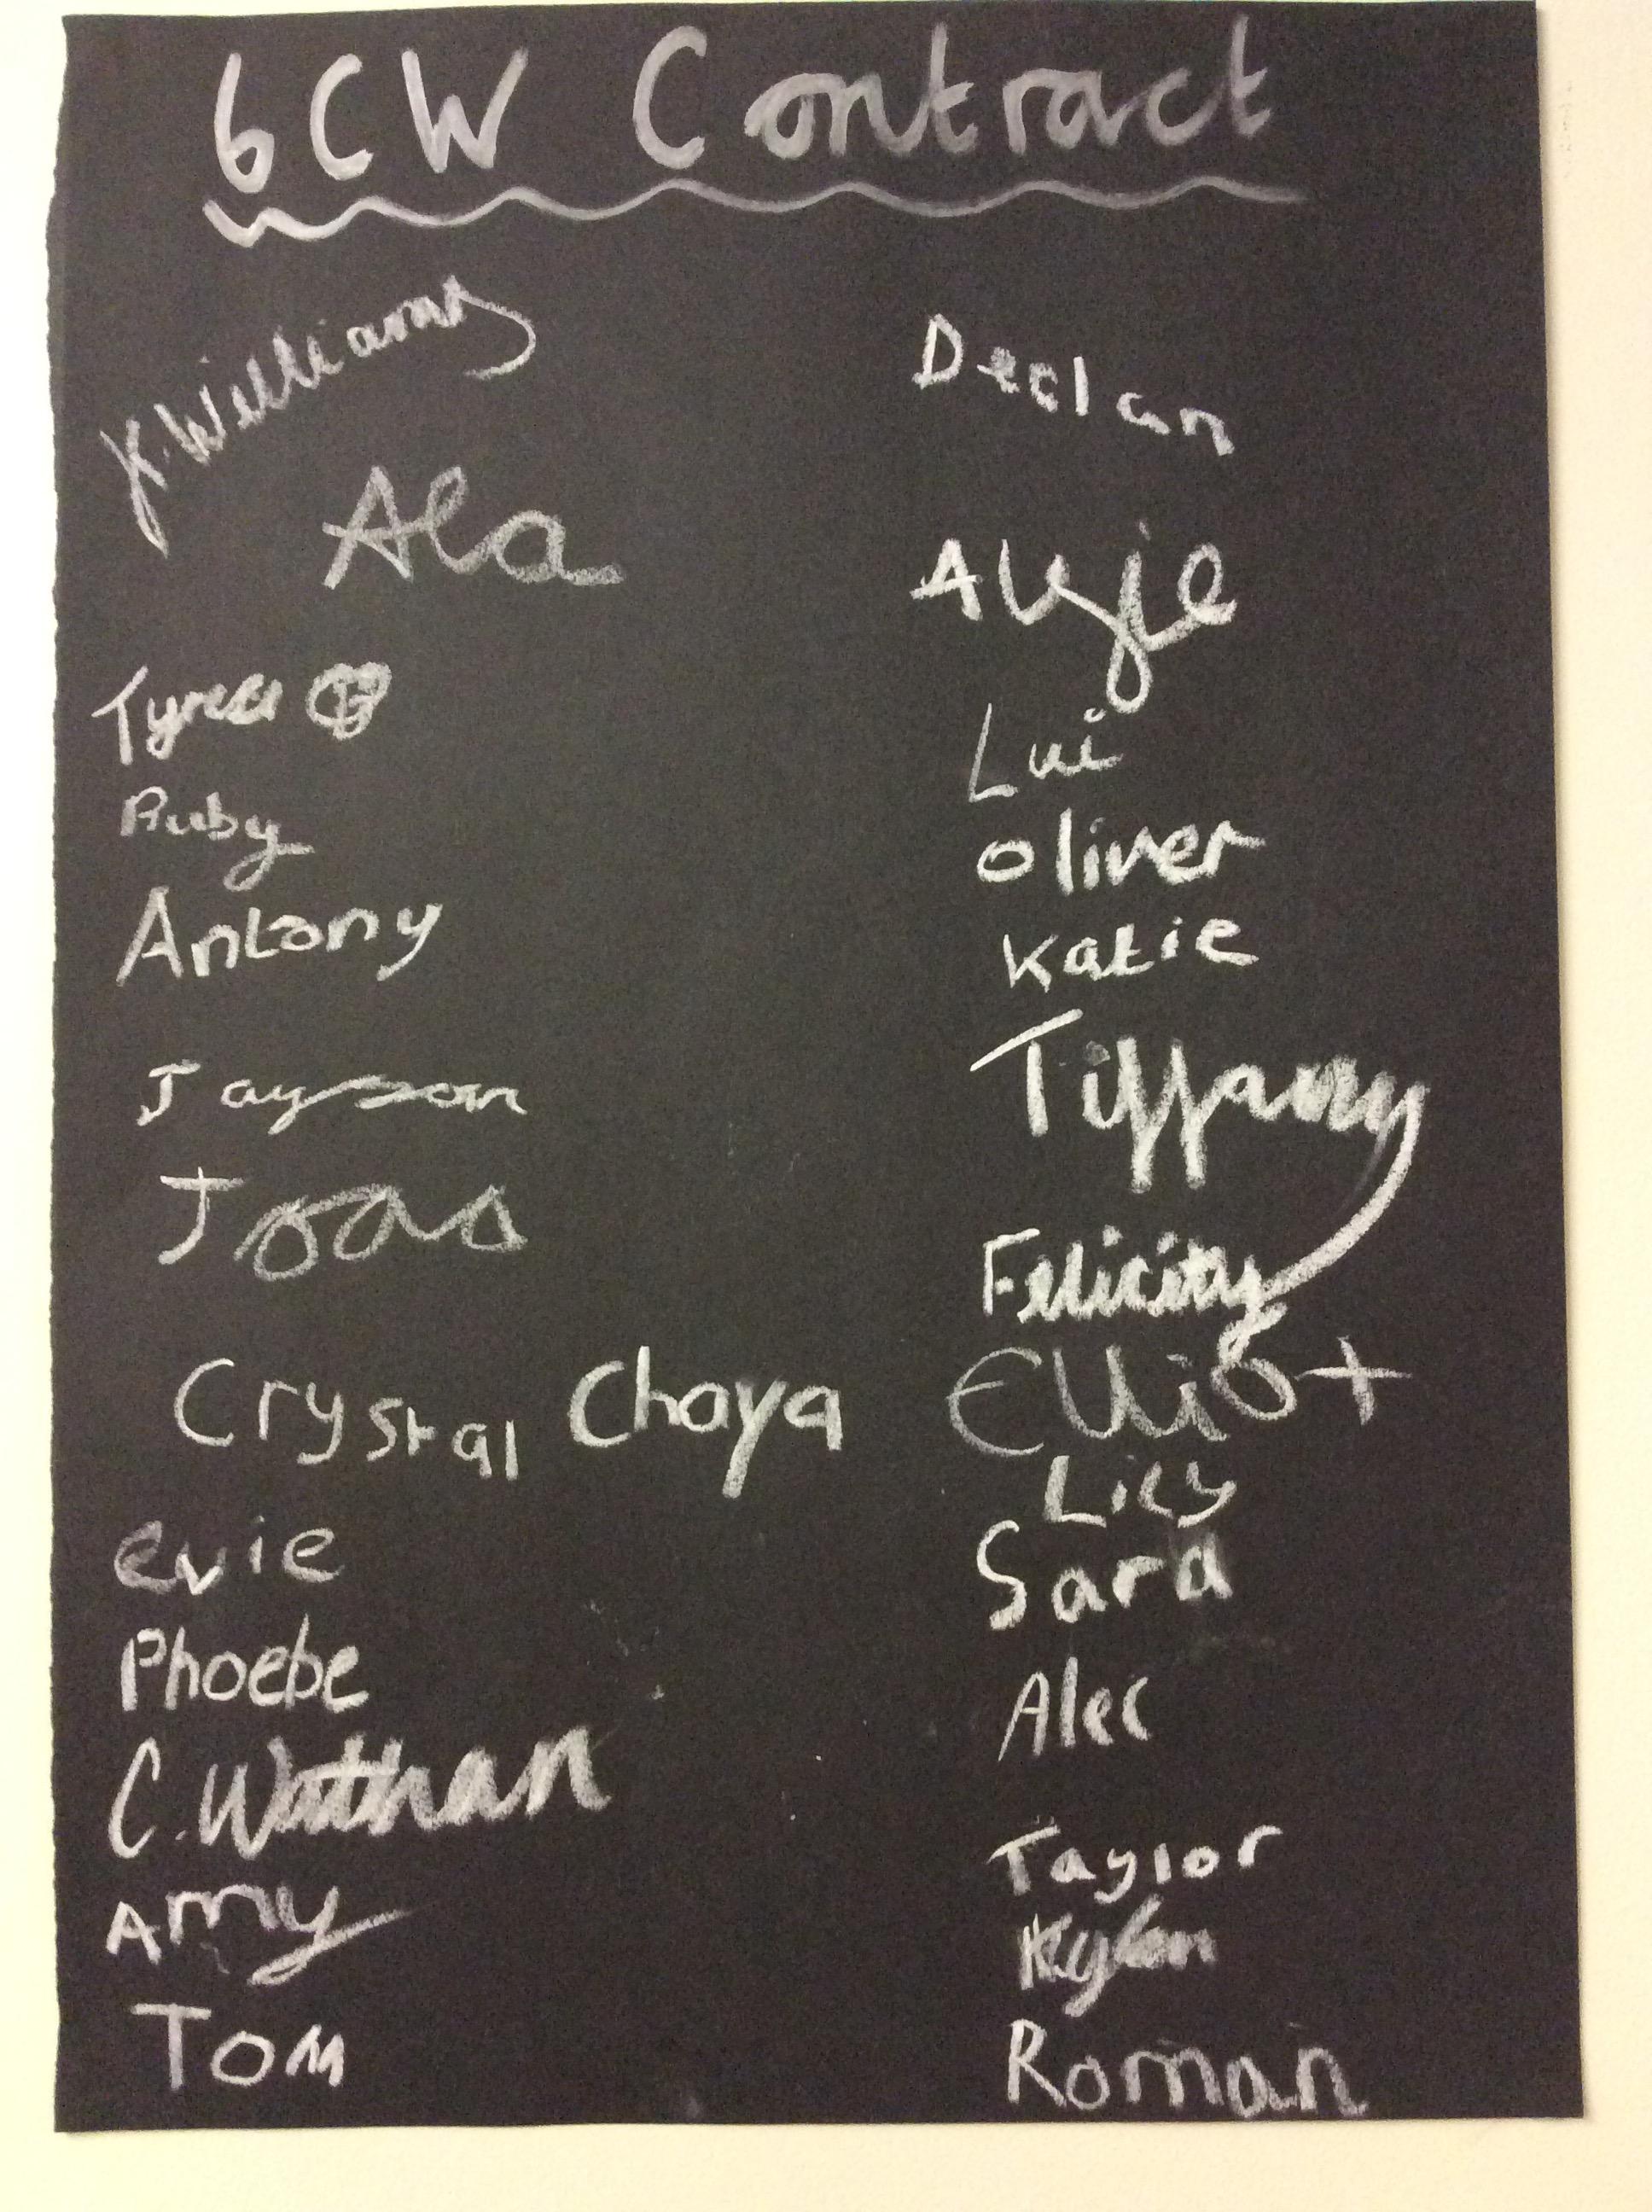 6CW Contract
K. Williams
Ala
Ruby
Antony
Jayson
Joao
Crystal Chaya
evie
Phoebe
C. Wathan
Amy
Tom
Declan
Lui
Oliver
Katie
Tiffany
Felicity
Elliot
Lily
Sara
Alec
Taylor
Roman